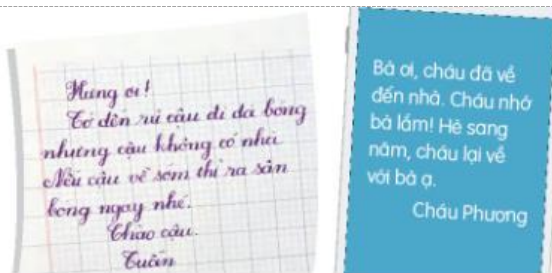 Hưng ơi!
Tớ đến rủ cậu đi đá bóng
nhưng cậu không có nhà.
Nếu cậu về sớm thì ra sân
bóng ngay nhé.
Chào cậu.
Tuấn
Bà ơi, cháu đã về
đến nhà. Cháu nhớ
bà lắm! Hè sang
năm, cháu lại về
với bà ạ.
Cháu Phương